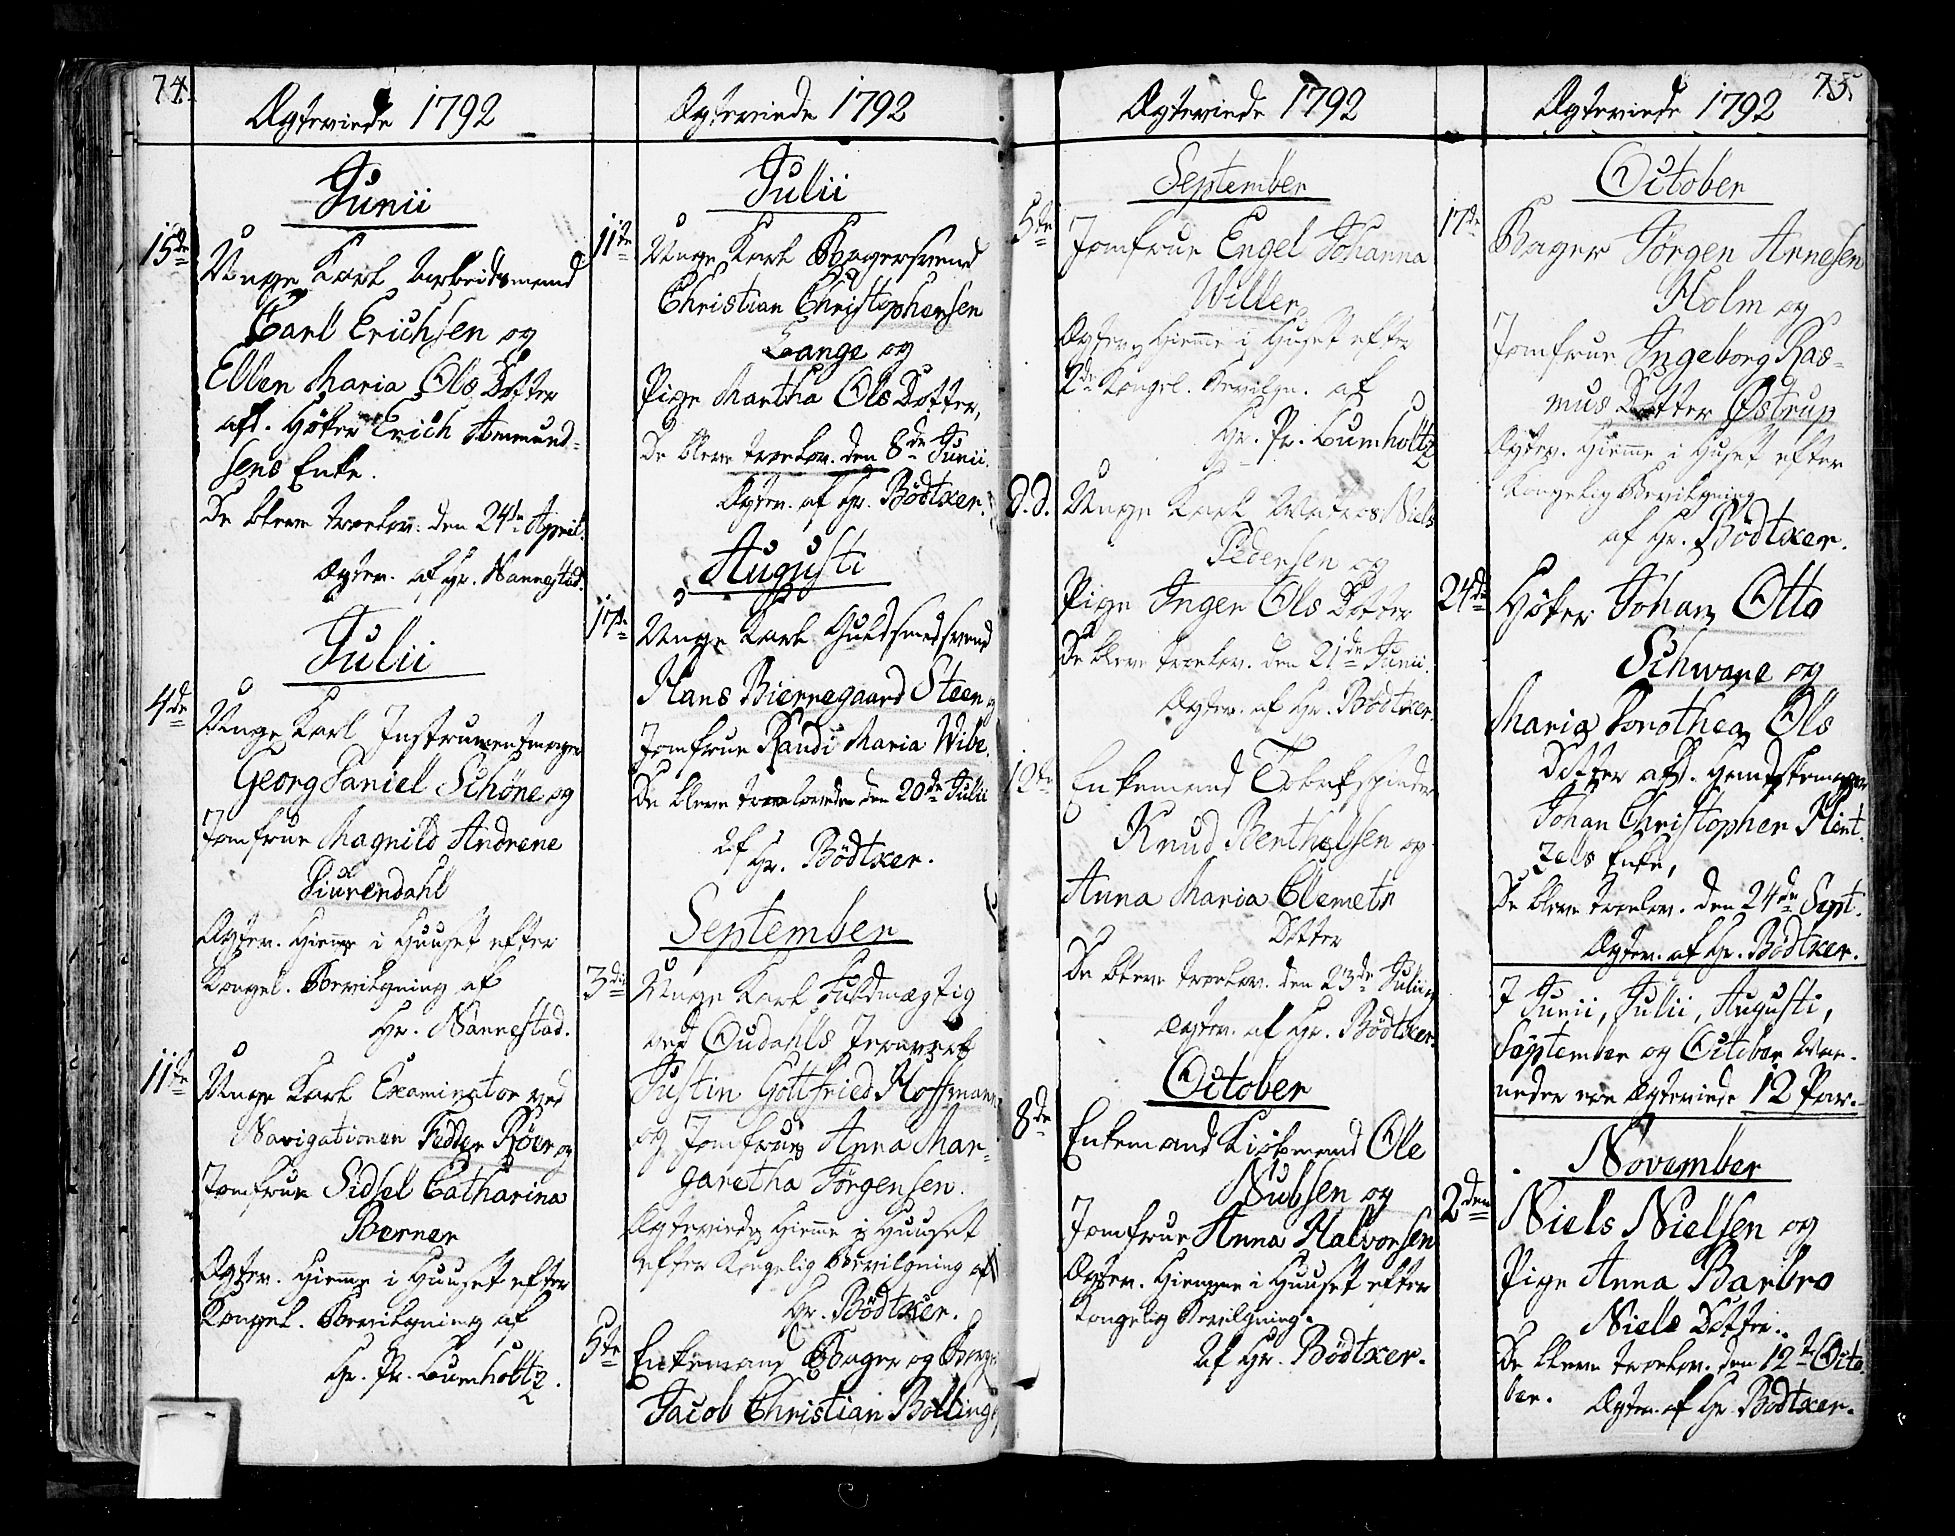 74.
Ægteviede 1792
Junii
15de
Unge Karl Arbeidsmand
Carl Erichsen og
Ellen Maria Ols Dotter
afd. Höker Erich Ammund-
sens Enke.
De bleve troelov: den 24de April.
Ægtev. af Hr. Nannestad.
Julii
4de
Unge Karl Instrumentmager
Georg Daniel Schöne og
Jomfrue Magnild Andrene
Diurendahl
Ægtev. Hiemme i Huuset efter
Kongel. Bevilgning af
Hr. Nannestad.
11te
Unge Karl Examinator ved
Navigationen Fedder Röer og
Jomfrue Sidsel Catharina
Berner
Ægtev. Hiemme i Huuset efter
Kongel. Bevilgning af
Hr. Pr. Lumholtz.
Ægteviede 1792
Julii
11te
Unge Karl Bagersvend
Christian Christophersen
Lange og
Pige Martha Ols Dotter,
De bleve troelov. den 8de Junii.
Ægtev. af Hr. Bödtker.
Augusti
17de
Unge Karl Guldsmedsvend
Hans Biernegaard Steen og
Jomfrue Randi Maria Wibe.
De bleve troelovede den 20de Julii
Af Hr. Bödtker.
September
3die
Unge Karl Fuldmægtig
ved Oudahls
Justin Gottfried Hoffmann
og Jomfrue Anna Mar-
garetha Jörgensen.
Ægteviede Hiemme i Huuset
efter Kongelig Bevilgning af
Hr. Bödtker.
5te
Enkemand Bager og Borger
Jacob Christian Bölling
75.
Ægteviede 1792
September
5te
Jomfrue Engel Johanna
Willer
Ægtev. Hiemme i Huset efter
Kongel. Bevilgn. af
Hr. Pr. Lumholtz
D.D.
Unge Karl Matros Niels
Pedersen og
Pige Inger Ols Dotter
De bleve troelov. den 21de Junii.
Ægtev. af Hr. Bödtker.
12te
Enkemand Tobakspinder
Knud Berthelsen og
Anna Maria Clemets
Dotter
De bleve troelov. den 23de Julii
Ægtev. af Hr. Bödtker.
October
8de
Enkemand Kiöbmand Ole
Nubsen og
Jomfrue Anna Halvorsen
Ægtev. Hiemme i Huuset efter
Kongelig Bevilgning.
Af Hr. Bödtker.
Ægteviede 1792
October
17de
Bager Jörgen Arnesen
Holm og
Jomfrue Ingeborg Ras-
mus Dotter Östrup
Ægtev. Hiemme i Huset efter
Kongelig Bevilgning
af Hr. Bödtker.
24de
Höker Johan Otto
Schwane og
Maria Dorothea Ols
Dotter afd. Handskemager
Johan Christopher Klint-
zels Enke,
De bleve troelov. den 24de Sept.
Ægtev. af Hr. Bödtker.
I Junii, Julii, Augusti,
September og October Maa-
neder ere Ægteviede 12 Par.
November
2den
Niels Nielsen og
Pige Anna Barbro
Niels Dotter.
De bleve troelov. den 12te Octo-
ber.
Ægtev. af Hr. Bödtker.